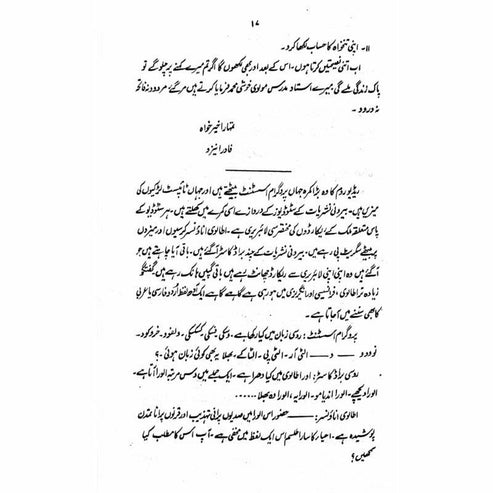 ۱۷
۱۱۔ اپنی تنخواہ کا حساب لکھا کرو۔
اب اتنی نصیحتیں کرتا ہوں۔ اس کے بعد اور بھی لکھوں گا اگر تم میرے کہنے پر چلو گے تو
پاک زندگی ملے گی میرے استاد مدرس مولوی خوشی محمد فرمایا کرتے ہیں مر گئے مردود نہ فاتحہ
نہ درود۔
تمہارا خیر خواہ
فادر انیزد
ریڈیو روم کا وہ بڑا کمرہ جہاں پروگرام اسسٹنٹ بیٹھتے ہیں اور جہاں ٹائپسٹ لڑکیوں کی
میزیں ہیں۔ بیرونی نشریات کے سٹوڈیوز کے دروازے اسی کمرے میں کھلتے ہیں۔ ہر سٹوڈیو کے
پاس متعلقہ ملک کے ریکارڈوں کی مختصر سی لائبریری ہے۔ اطالوی اناؤنسر کرسیوں اور میزوں
پر بیٹھے سگریٹ پی رہے ہیں۔ بیرونی نشریات کے چند براڈ کاسٹر آ گئے ہیں۔ باقی آیا چاہتے ہیں جو
آ گئے ہیں وہ اپنی اپنی لائبریری سے ریکارڈ چھانٹ رہے ہیں باقی گپیں ہانک رہے ہیں۔ گفتگو
زیادہ تر اطالوی، فرانسیسی اور انگریزی میں ہو رہی ہے گاہے گاہے ایک آدھ لفظ اُردو فارسی یا عربی
کا بھی سننے میں آ جاتا ہے۔
پروگرام اسسٹنٹ: روسی زبان میں کیا رکھا ہے۔ وسکی ٹسکی کیسکی۔ ولفود۔ خرد کود۔
نودود ـــ دـــ التی آر۔ التی پی۔ التا کے۔ بھلا یہ بھی کوئی زبان ہوئی۔؟
روسی براڈ کاسٹر: اور اطالوی میں کیا دھرا ہے۔ ایک جملے میں دس مرتبہ الورا آتا ہے۔
الورا دیکھیے۔ الورا اندیامو۔ الورا یہ، الورا وہ بھلا .......
اطالوی اناؤنسر: ـــ حضور اس الورا میں صدیوں پرانی تہذیب اور قرنوں پرانا تمدن
پوشیدہ ہے۔ احیار کا سارا طلسم اس ایک لفظ میں مخفی ہے۔ آپ اس کا مطلب کیا
سمجھیں؟